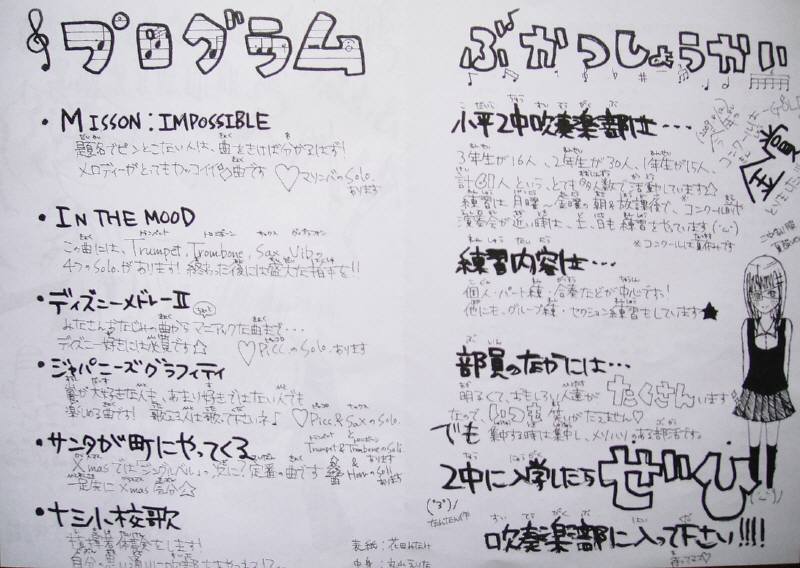 プログラム
・MISSON:IMPOSSIBLE
題名でピンとこない人は、曲をきけば分かるはず!
メロディーがとてもカッコイイ曲です ♡マリンバのSolo.あります
・IN THE MOOD
この曲には、Trumpet, Trombone, Sax, Vib.の
4つのSoloがあります!終わった後には盛大な拍手を!!
・ディズニーメドレーⅡ
みなさんおなじみの曲からマニアックな曲まで…
ディズニー好きには必見です☆ ♡Picc.のSolo.あります
・ジャパニーズグラフィティ
が大好きな人も、あまり好きではない人でも
楽しめる曲です! 歌える人は歌って下さいネ♪ ♡Picc&SaxのSolo.あります
・サンタが町にやってくる
Trumpet&TromboneのSoli
Xmasでは「ジングルベル」の次に?定番の曲です
一足先にXmas気分☆
・十三小校歌
指揮者体験をします!
表紙:花田
中身:丸山
ぶかつしょうかい
小平2中吹奏楽部は…
3年生が16人、2年生が30人、1年生が15人、
計61人という、とても多人数で活動しています☆
練習は月曜~金曜の朝&放課後で、※コンクール前や
演奏会が近い時は、土、日も練習をやっています
※コンクールは夏休みです
金賞
練習内容は…
個人・パート練・合奏などが中心です!
他にも、グループ練・セクション練習もしています★
部員のなかには…
明るくて、おもしろい人達がたくさんいます
なので、いつも笑いがたえません♡
でも 集中する時は集中し、メリハリのある部活です。
2中に入学したらぜひ
吹奏楽部に入って下さい!!!!
待ってマス♡